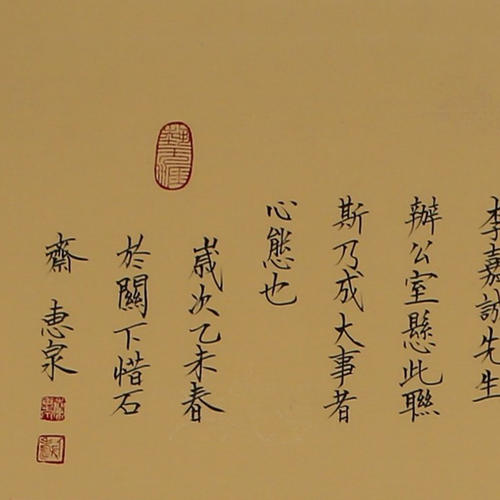 李嘉誠先生
辦公室懸此聯
斯乃成大事者
心態也
歲次乙未春
於關下惜石
齋 惠泉